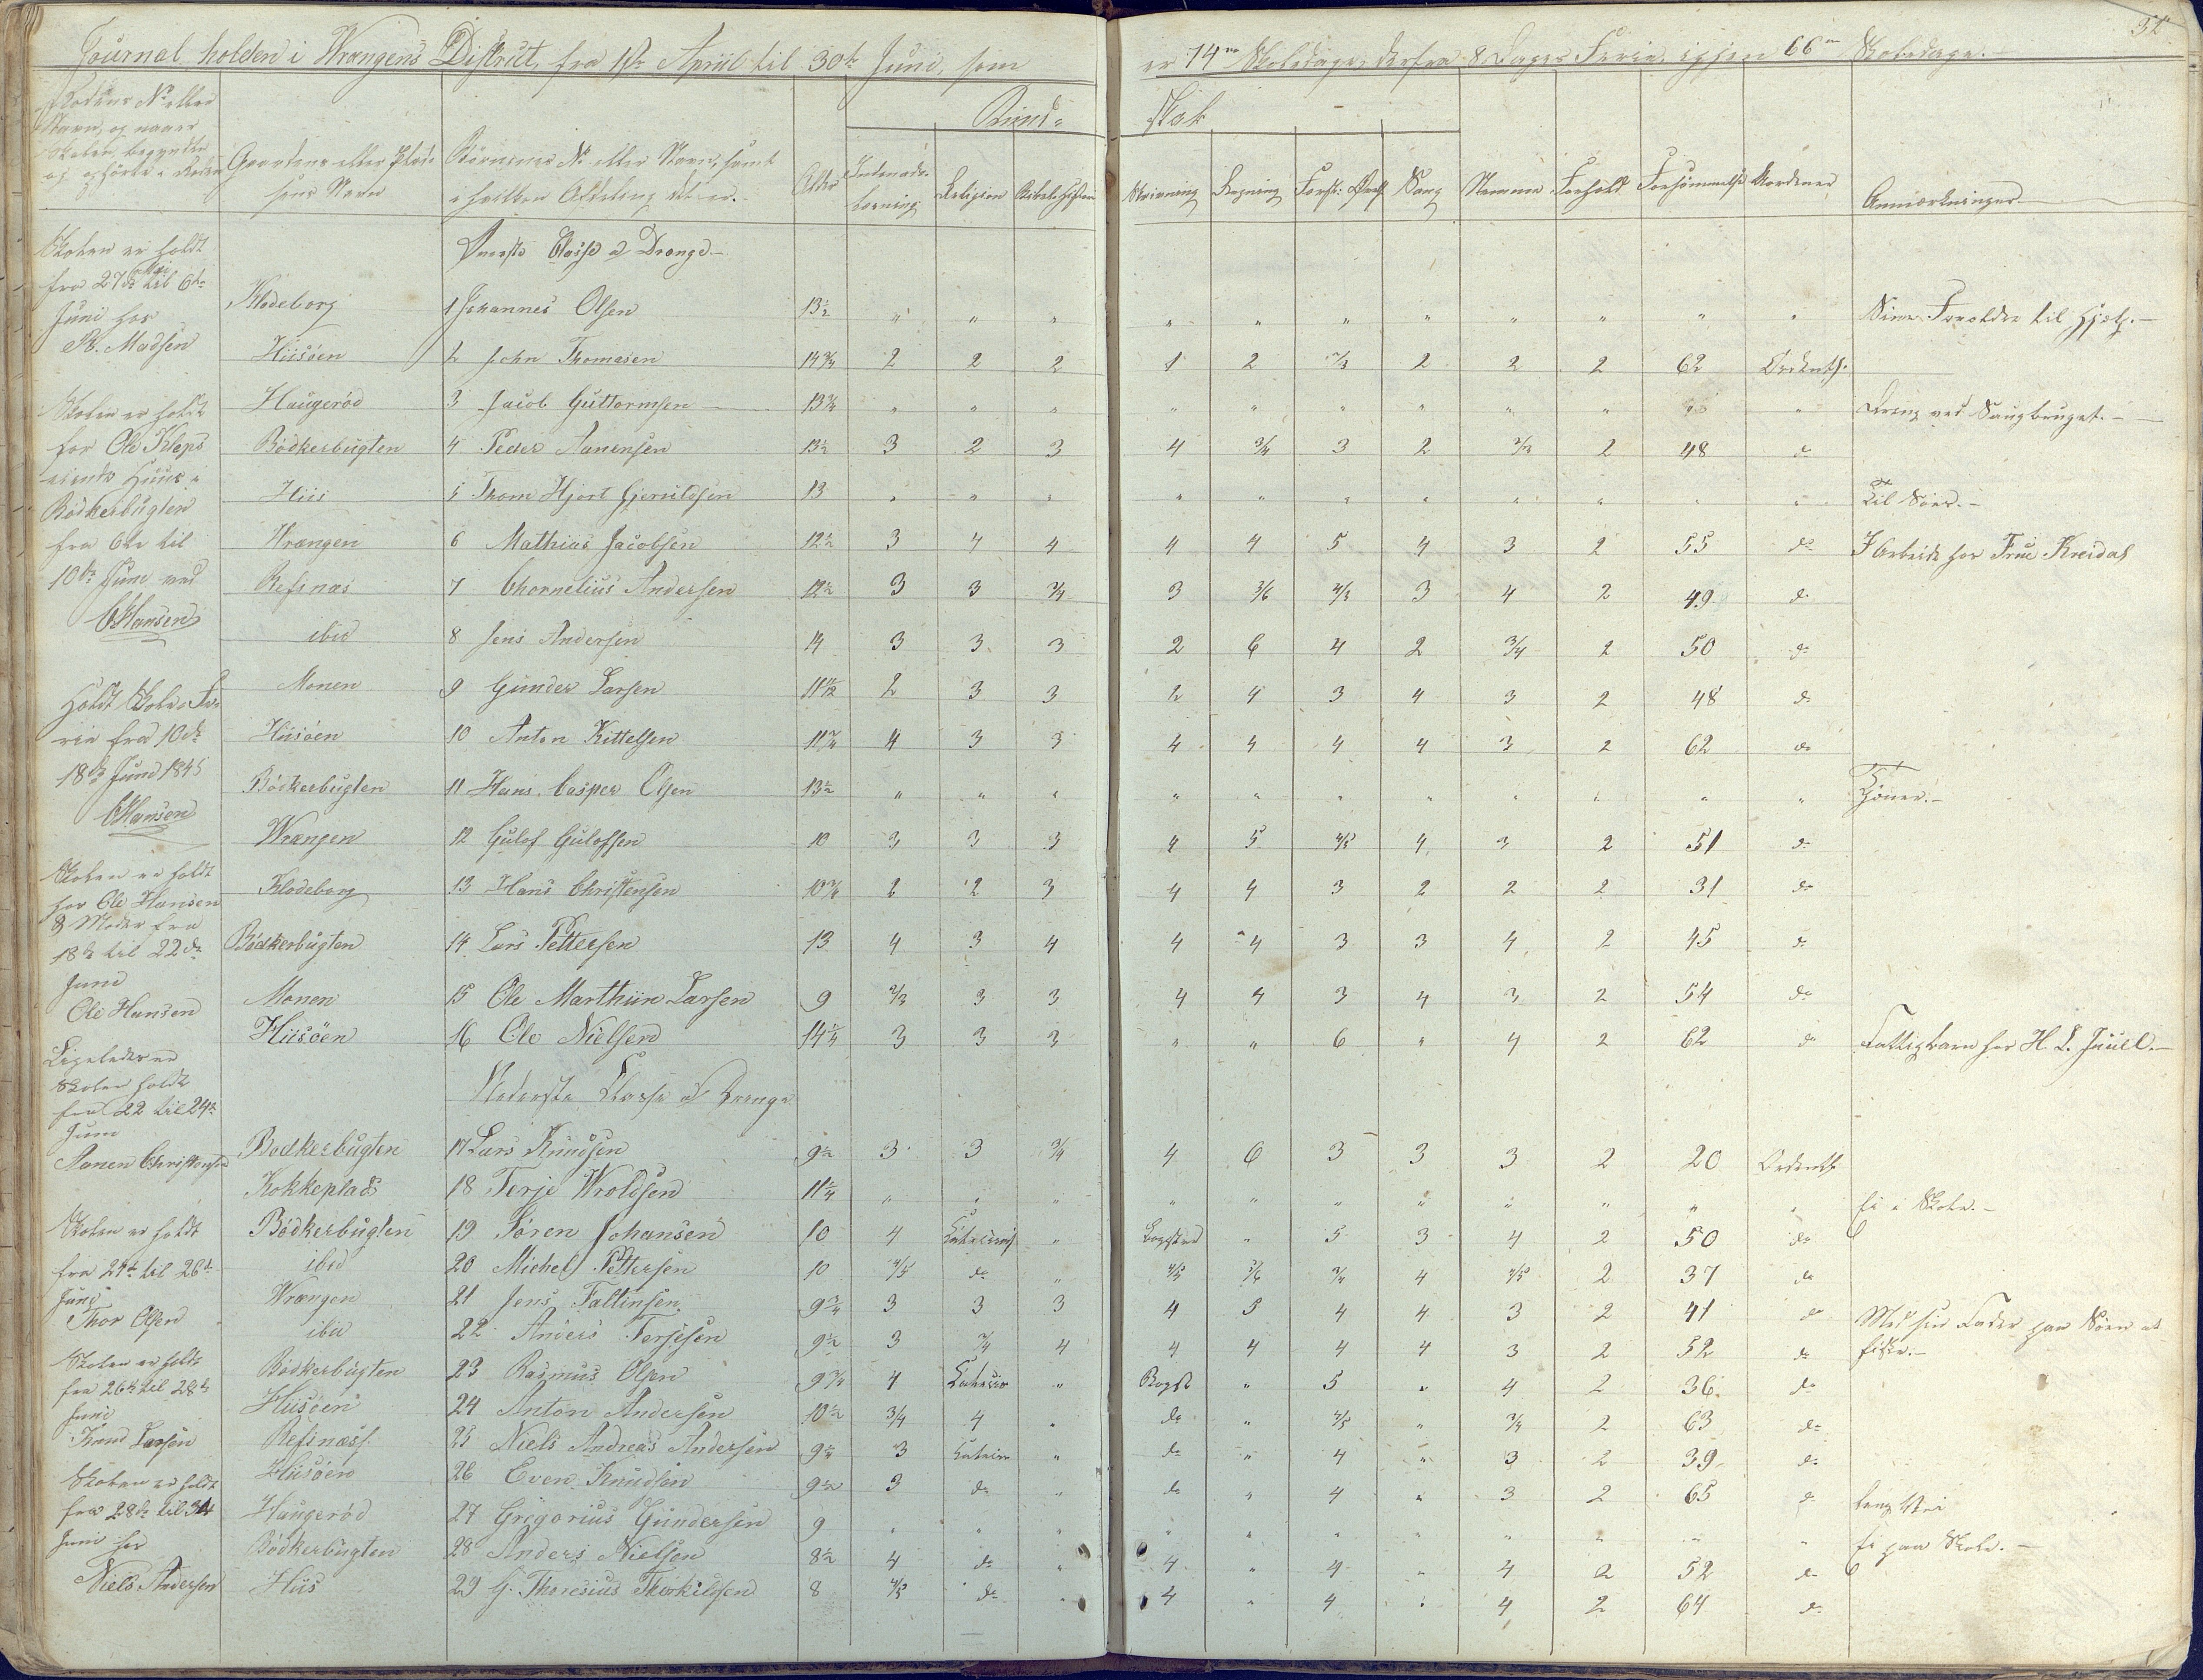 32
Journal holden i Wrangens District, fra 1ste April til 30te Juni, som er 74 Skoledage, derfra 8 Dages Ferie, igjen 66 Skoledage.
Rodens No eller Navn, og naar Skolen begyndte og ophörte i Roden
Gaardens eller Pladsens Navn
Börnenes No eller Navn, samt i hvilken Afdeling de er.
Alder
Kundskab
Indenadslæsning
Religion
Bibelhistorie
Skrivning
Regning
Sang
Nemme
Forhold
Forsömmelse
Anmærkninger
Øverste Classe af Drenge
Klodeborg 1 Johannes Olsen 13½ " " " " " " " " " " " Sine Forældre til Hjælp.
Hiisöen 2 John Thomasen 14¾ 2 2 2 1 2 2/3 2 2 2 62 Ordentl.
Haugeröd 3 Jacob Guttormsen 13¾ " " " " " " " " " " " Dreng ved Saugbruget.
Bödkerbugten 4 Peder Aanensen 13½ 3 2 3 4 3/4 3 2 2/3 2 48 do
Hiis 5 Thom Hjort Gjeruldsen 13 " " " " " " " " " " " Til Söes.
Wrængen 6 Mathias Jacobsen 12½ 3 4 4 4 4 5 4 3 2 55 do I Arbeide hos Frue Kreidal
Refsnæs 7 Chornelius Andersen 12½ 3 3 3/4 3 5/6 4/3 3 4 2 49 do
ibid 8 Jens Andersen 14 3 3 3 2 6 4 2 3/4 2 50 do
Monen 9 Gunder Larsen 11 11/12 2 3 3 2 4 3 4 3 2 48 do
Hiisöen 10 Anton Kittelsen 11¾ 4 3 3 4 4 4 4 3 2 62 do
Bödkerbugten 11 Hans Casper Olsen 13½ " " " " " " " " " " " Tjener.
Wrængen 12 Gulof Gulofsen 10 3 3 3 4 5 4/5 4 3 2 51 do
Klodeborg 13 Hans Christensen 10¾ 2 2 3 4 4 3 2 2 2 31 do
Bödkerbugten 14 Lars Pettersen 13 4 3 4 4 4 3 3 4 2 45 do
Monen 15 Ole Marthiin Larsen 9 2/3 3 3 4 4 3 4 3 2 54 do
Hiisöen 16 Ole Nielsen 14¼ 3 3 3 " " 6 " 4 2 62 do Fattigbarn hos H. L. Juell.
Nederste Classe af Drenge
Bödkerbugten 17 Lars Knudsen 9½ 3 3 3/4 4 6 3 3 3 2 20 Ordentl
Kokkeplads 18 Terje Wroldsen 11¼ " " " " " " " " " " " Ei i Skole.
Bödkerbugten 19 Sören Johansen 10 4 " Bogstav " 5 3 4 2 50 do
ibid 20 Michel Pettersen 10 4/5 do " 4/5 5/6 3/4 4 4/5 2 37 do
Wrængen 21 Jens Faltinsen 9¾ 3 3 3 4 5 4 4 3 2 41 do
ibid 22 Anders Terjesen 9½ 3 3/4 4 4 4 4 4 3 2 52 do Med sin Fader paa Söen at fiske.
Bödkerbugten 23 Rasmus Olsen 9¾ 4 " Bogst " 5 " 4 2 36 do
Hiisöen 24 Anton Andersen 10½ 3/4 4 " do " 4/5 " 3/4 2 63 do
Refsnæs 25 Niels Andreas Andersen 9½ 3 " do " 4 " 3 2 39 do
Hiisöen 26 Even Knudsen 9½ 3 do " do " 4 " 3 2 65 do lang Vei
Haugeröd 27 Gregorius Gundersen 9 " " " " " " " " " " " Ei paa Skole.
Bödkerbugten 28 Anders Nielsen 8½ 4 do " 4 " 4 " 4 2 52 do
Hiis 29 G. Thoresius Therkildsen 8 4/5 do " 4 " 4 " 4 2 64 do
Skolen er holdt
fra 27de Mai til 6te
Juni hos
R. Madsen
Skolen er holdt
hos Ole Kleps
Huus i
Bödkerbugten
fra 6te til
10de Juni ved
OHansen
Holdt Skole Ferie
fra 10de
18de Juni 1845
OHansen
Skolen er holdt
hos Ole Hansen
& Moder fra
18de til 22de
Juni
Ole Hansen
Ligeledes er
Skolen holdt
fra 22 til 24de
Juni
Aanen Christensen
Skolen er holdt
fra 24de til 26de
Juni
Thor Olsen
Skolen er holdt
fra 26de til 28de
Juni
Knud Larsen
Skolen er holdt
fra 28de til
Juni hos
Niels Andersen